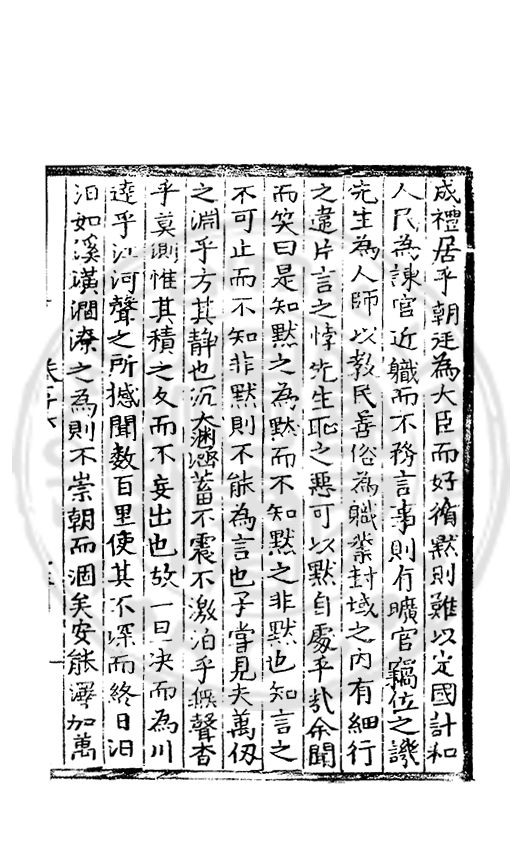 成禮居乎朝廷為大臣而好循默則難以定國計和
人民為諫官近職而不務言事則有曠官竊位之譏
先生為人師以教民善俗為職業封域之內有細行
之違片言之悖先生恥之惡可以默自處乎哉余聞
而笑曰是知默之為默而不知默之非默也知言之
不可止而不知非默則不能為言也子嘗見夫萬仞
之淵乎方其靜也沉涵蓄不震不激泊乎無聲杳
乎莫測惟其積之久而不妄出也故一旦决而為川
達乎江河聲之所撼聞數百里使其不深而終日汩
汩如溪潢澗潦之為則不崇朝而涸矣安能澤加萬